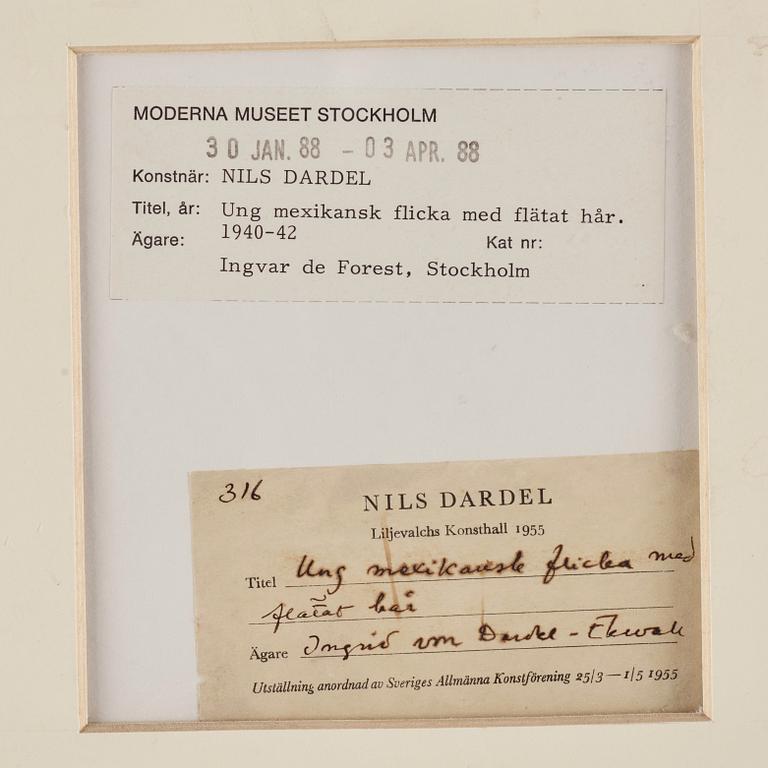 MODERNA MUSEET STOCKHOLM
30 JAN. 88 – 03 APR. 88
Konstnär: NILS DARDEL
Titel, år: Ung mexikansk flicka med flätat hår.
1940-42
Ägare: Kat nr:
Ingvar de Forest, Stockholm
316
NILS DARDEL
Liljevalchs Konsthall 1955
Titel Ung mexikansk flicka med
flätat hår
Ägare Ingrid von Dardel - Ekwall
Utställning anordnad av Sveriges Allmänna Konstförening 25/3 — 1/5 1955